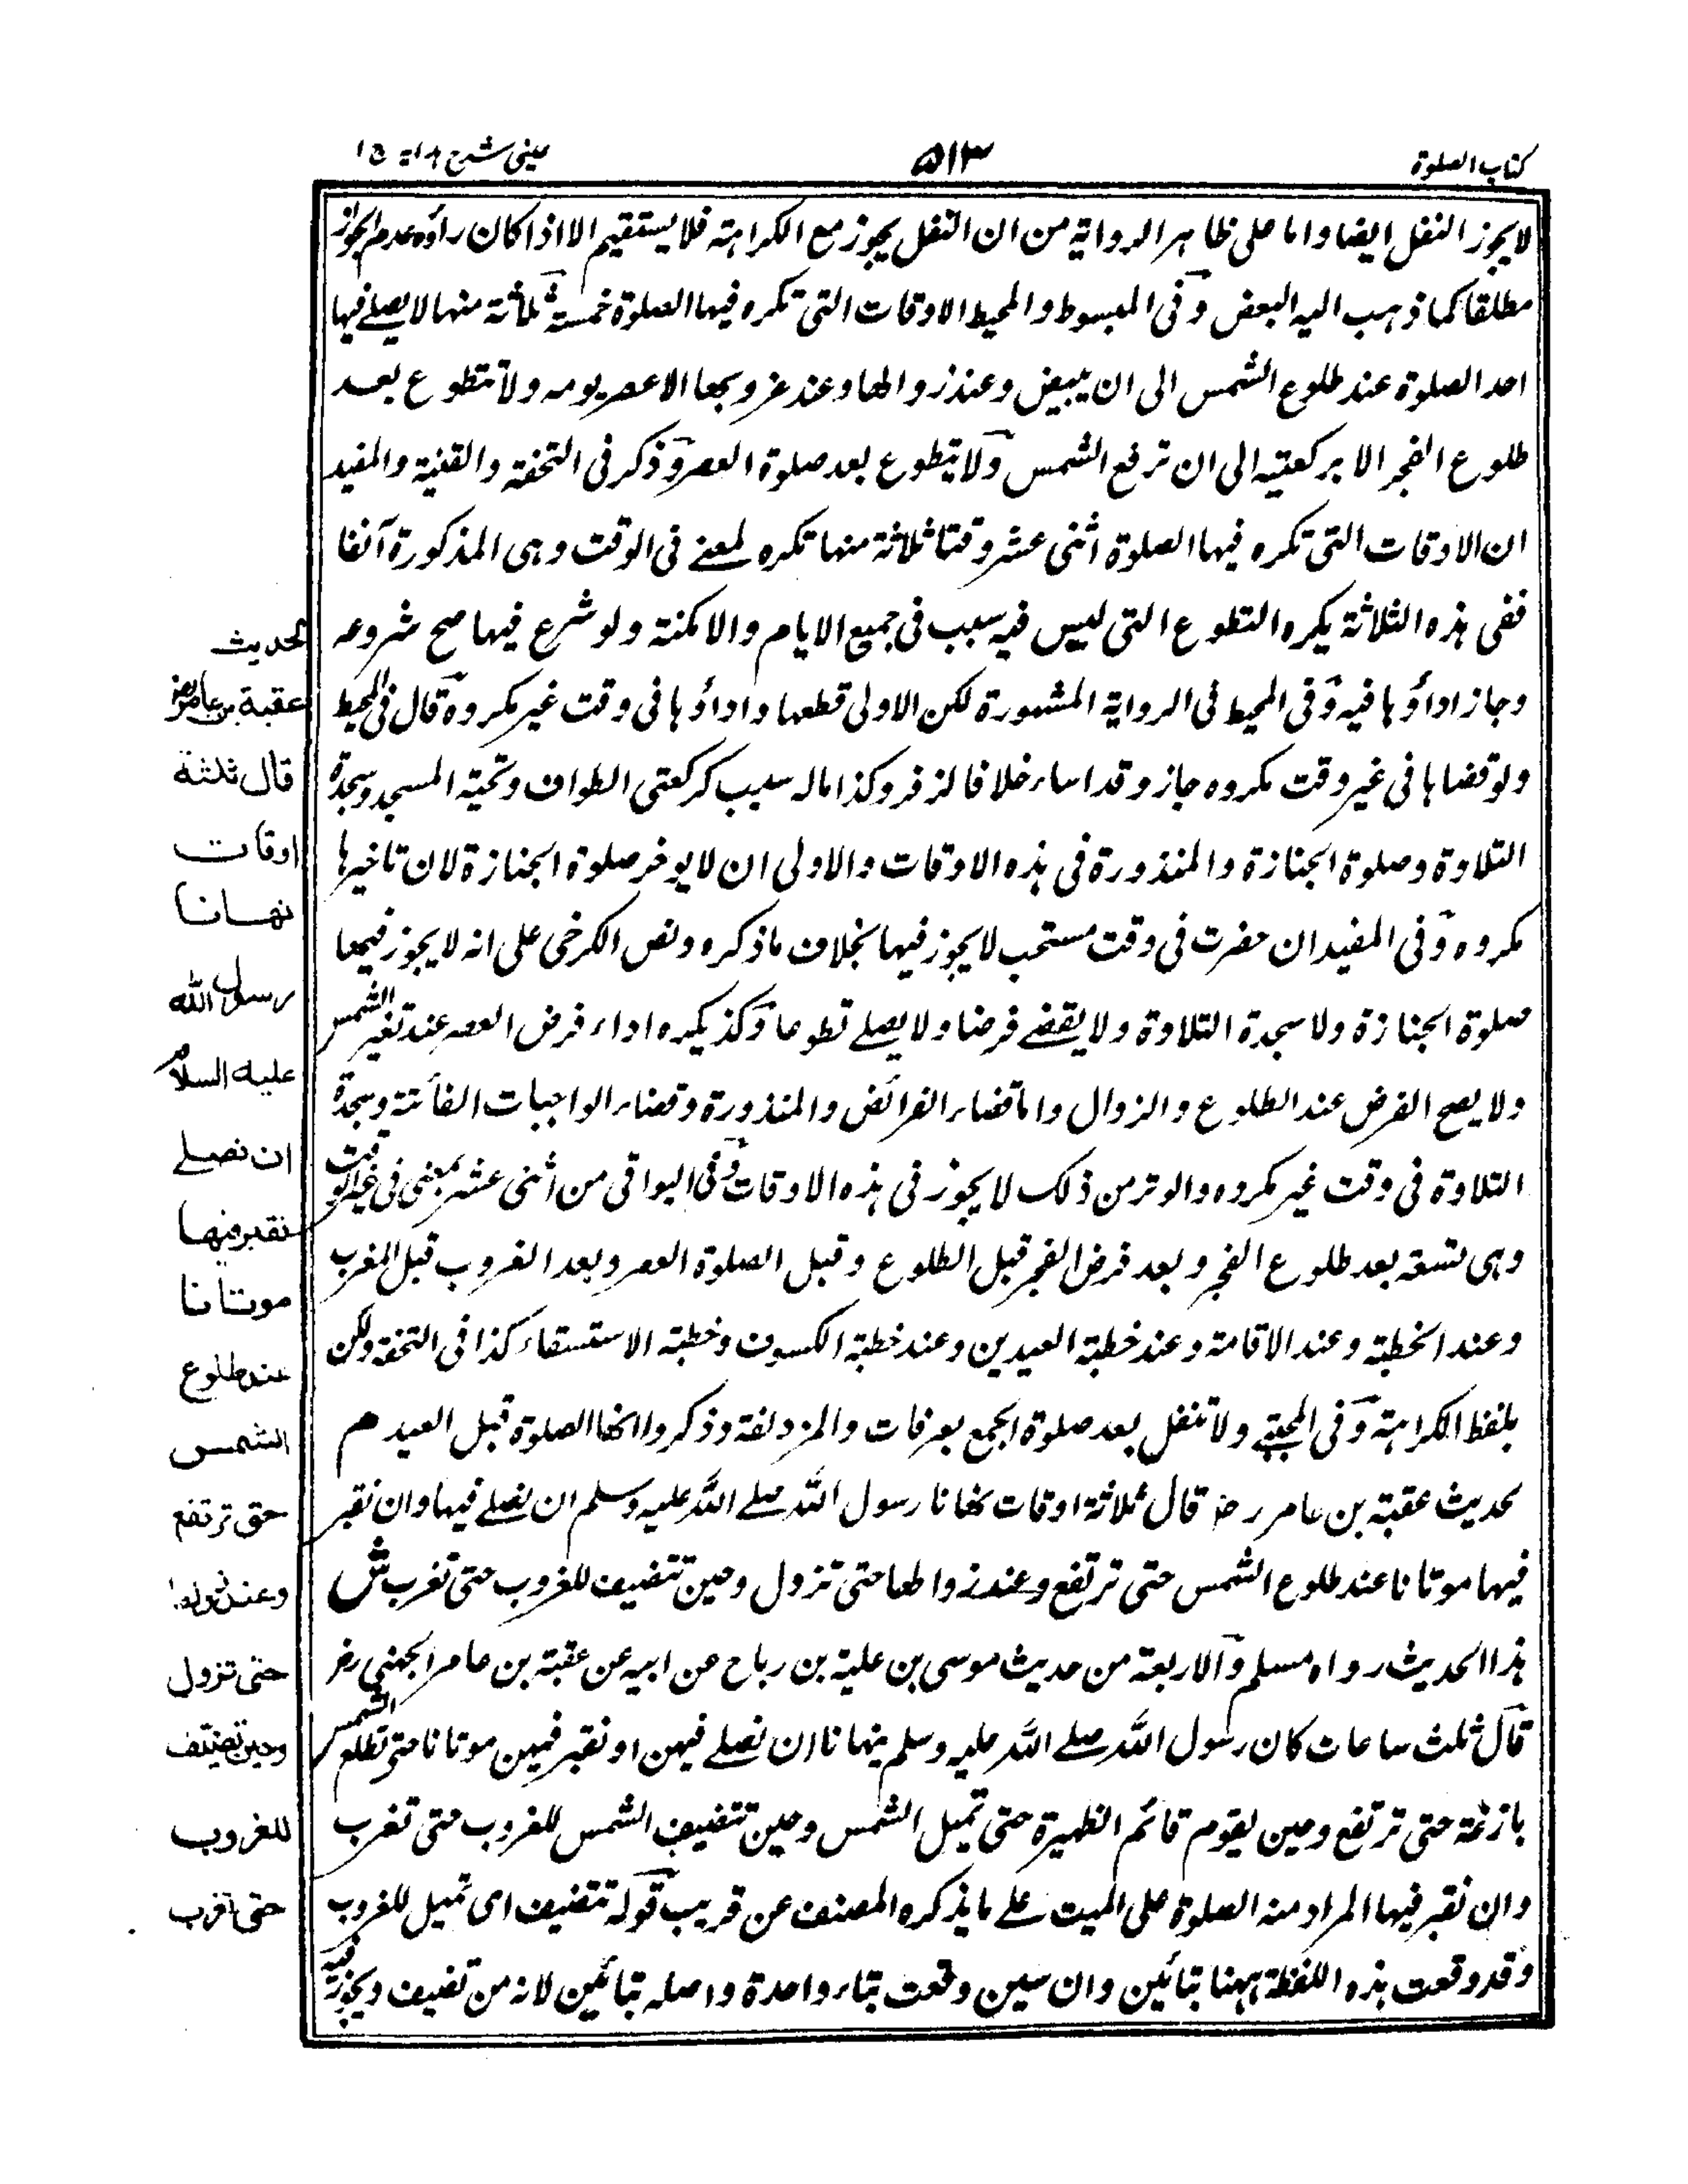 كتاب الصلوة
٥١٣
عينى شرح هداية ج ١
لا يجوز النفل ايضا واما على ظاهر الرواية من ان النفل يجوز مع الكراهة فلا يستقيم الا اذا كان رأوه عدم الجواز
مطلقا كما ذهب اليه البعض وفى المبسوط والمحيط الاوقات التى تكره فيها الصلوة خمسة ثلاثة منها لا يصلے فيها
احد الصلوة عند طلوع الشمس الى ان يبيض وعند زوالها وعند غروبها الا عصر يومه ولا تتطوع بعد
طلوع الفجر الا بركعتيه الى ان ترفع الشمس ولا يتطوع بعد صلوة العصر وذكر فى التحفة والقنية والمفيد
ان الاوقات التى تكره فيها الصلوة اثنى عشر وقتا ثلاثة منها تكره لمعنے فى الوقت وهى المذكورة آنفا
ففى هذه الثلاثة يكره التطوع التى ليس فيه سبب فى جميع الايام والامكنة ولو شرع فيها صح شروعه
وجاز اداؤها فيه وفى المحيط فى الرواية المشهورة لكن الاولى قطعها واداؤها فى وقت غير مكروه قال فى المحيط
ولو قضاها فى غير وقت مكروه جاز وقد اساء خلافا لزفر وكذا ماله سبب كركعتى الطواف وتحية المسجد وسجدة
التلاوة وصلوة الجنازة والمنذورة فى هذه الاوقات والاولى ان لا يوخر صلوة الجنازة لان تاخيرها
مكروه وفى المفيد ان حضرت فى وقت مستحب لا يجوز فيها بخلاف ما ذكره ونص الكرخى على انه لا يجوز فيها
صلوة الجنازة ولا سجدة التلاوة ولا يقضے فرضا ولا يصلے تطوعا وكذ يكره اداء فرض العصر عند تغير الشمس
ولا يصح الفرض عند الطلوع والزوال واما قضاء الفرائض والمنذورة وقضاء الواجبات الفائتة وسجدة
التلاوة فى وقت غير مكروه والوتر من ذلك لا يجوز فى هذه الاوقات وفى البواقى من اثنى عشر بمعنى فى غير الوقت
وهى تسعة بعد طلوع الفجر وبعد فرض الفجر قبل الطلوع وقبل الصلوة العصر وبعد الغروب قبل المغرب
وعند الخطبة وعند الاقامة وعند خطبة العيدين وعند خطبة الكسوف وخطبة الاستسقاء كذا فى التحفة ولكن
بلفظ الكراهة وفى المجتبے ولا تنفل بعد صلوة الجمع بعرفات والمزدلفة وذكروا انها الصلوة قبل العيد م
لحديث عقبة بن عامر رض قال ثلاثة اوقات نهانا رسول الله صلے الله عليه وسلم ان نصلے فيها وان نقبر
فيها موتانا عند طلوع الشمس حتى ترتفع وعند زوالها حتى تزول وحين تتضيف للغروب حتى تغرب ش
هذا الحديث رواه مسلم والاربعة من حديث موسى بن علية بن رباح عن ابيه عن عقبة بن عامر الجهنى رض
قال ثلث ساعات كان رسول الله صلے الله عليه وسلم ينهانا ان نصلے فيهن او نقبر فيهن موتانا حتى تطلع الشمس
بازغة حتى ترتفع وحين يقوم قائم الظهيرة حتى تميل الشمس وحين تتضيف الشمس للغروب حتى تغرب
وان نقبر فيها المراد منه الصلوة على الميت علے ما يذكره المصنف عن قريب قوله تتضيف اى تميل للغروب
وقد وقعت هذه اللفظة ههنا بتائين وان سين وقعت بتاء واحدة واصله بتائين لانه من تضيف ويجوز فيه
لحديث
عقبة بن عامر رض
قال ثلثة
اوقات
نهانا
رسول الله
عليه السلام
ان نصلے
نقبر فيها
موتانا
عند طلوع
الشمس
حتى ترتفع
وعند زوالها
حتى تزول
وحين تضيف
للغروب
حتى تغرب